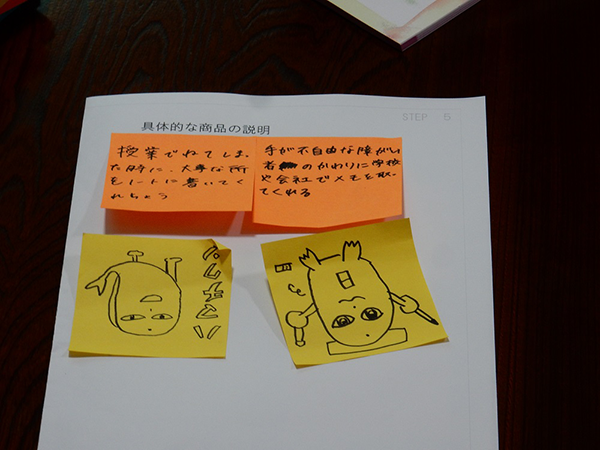 STEP 5
具体的な商品の説明
授業でねてしまっ
た時に、大事な所
をノートに書いてく
れちゃう
手が不自由な障がい
者のかわりに学校
や会社でメモを取っ
てくれる